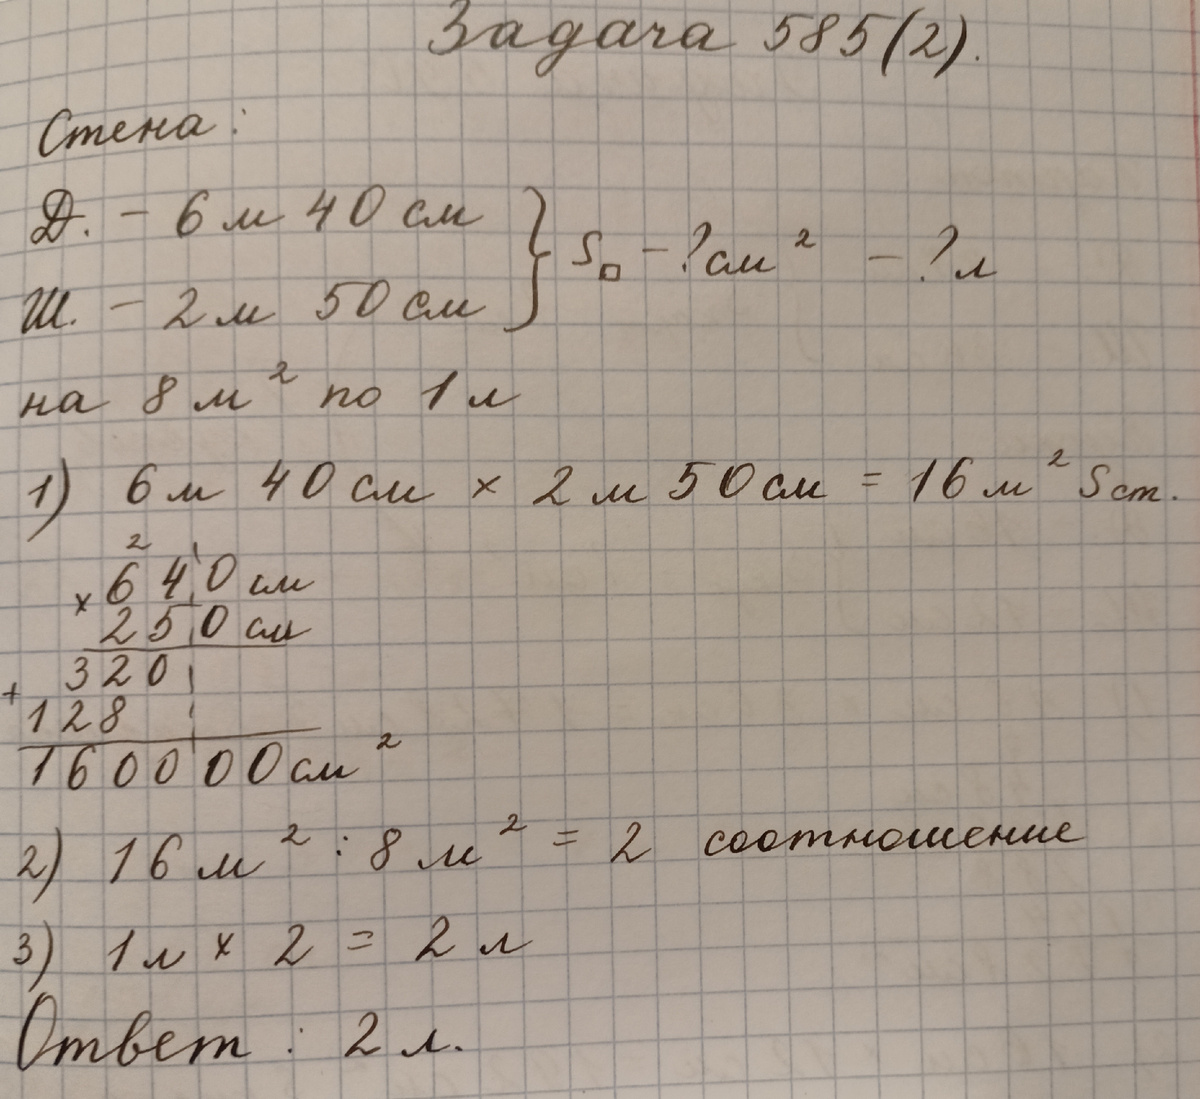 Задача 585(2).
Стена:
Д. - 6 м 40 см
Ш. - 2 м 50 см
} S□ - ? см² - ? л
на 8 м² по 1 л
1) 6 м 40 см × 2 м 50 см = 16 м² Sст.
2
× 640 см
250 см
320
+
128
160000 см²
2) 16 м² : 8 м² = 2 соотношение
3) 1 л × 2 = 2 л
Ответ : 2 л.